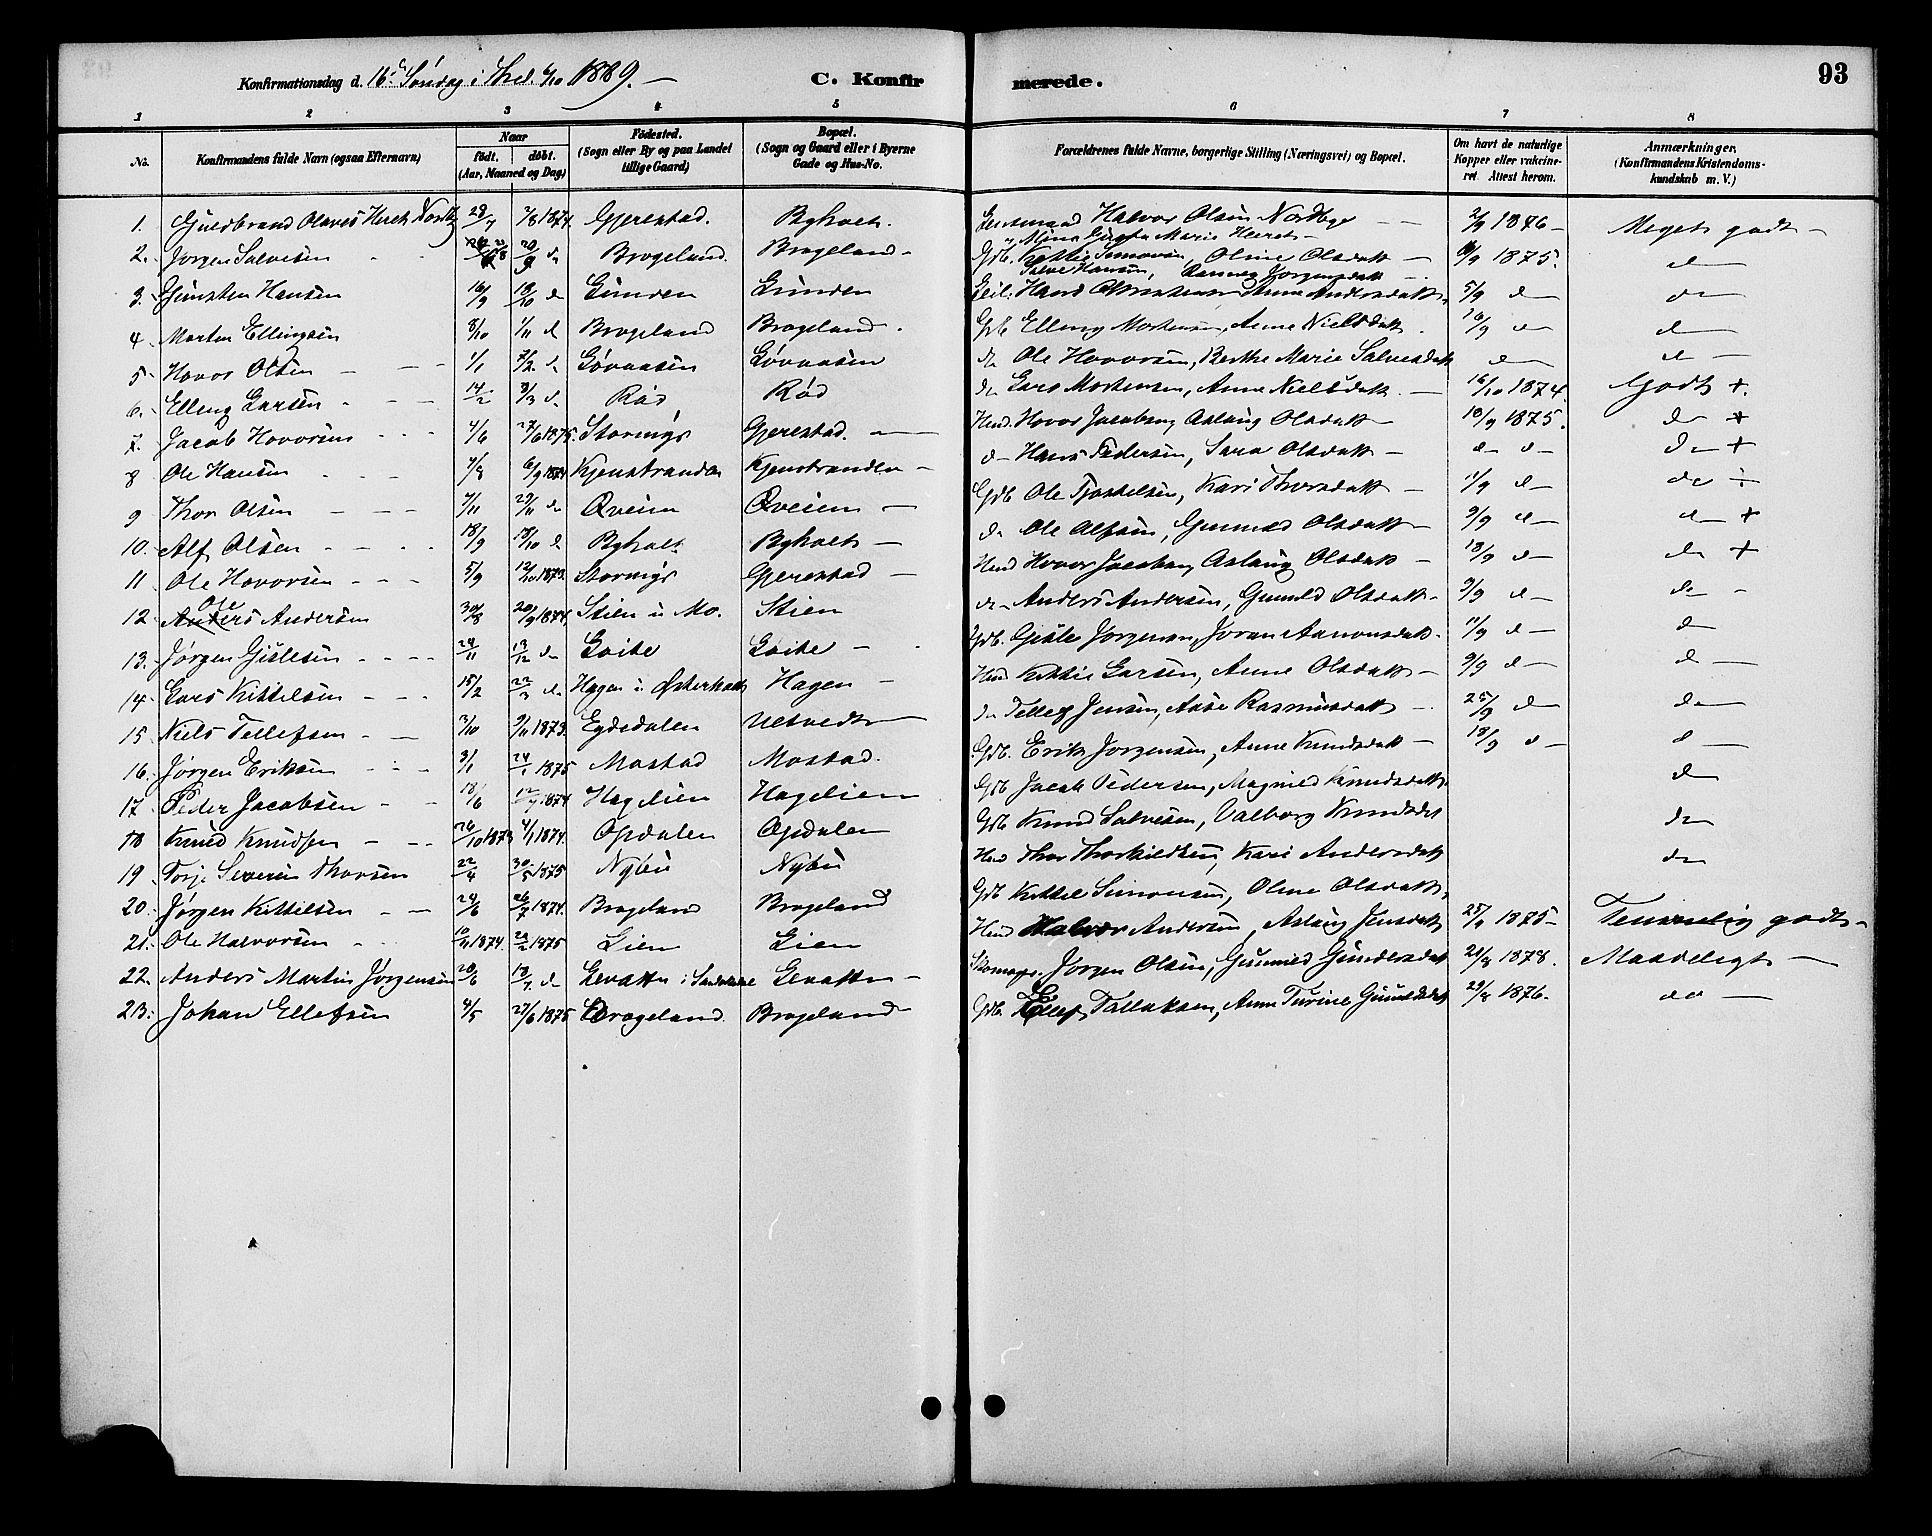 93
Konfirmationsdag d. 16de Søndag i Thel. 6/10 1889. —
C. Konfirmerede.
1 2 3 4 5 6 7 8
No. Konfirmandens fulde Navn (ogsaa Efternavn) Naar født. døbt. (Aar, Maaned og Dag) Fødested. (Sogn eller By og paa Landet tillige Gaard) Bopæl. (Sogn og Gaard eller i Byerne Gade og Hus-No. Forældrenes fulde Navne, borgerlige Stilling (Næringsvei) og Bopæl. Om havt de naturlige Kopper eller vakcineret. Attest herom. Anmærkninger. (Konfirmandens Kristendomskundskab m. V.)
1. Guldbrand Olaves Herek 28/7 2/8 1874. Gjerestad. Byholt. Halvor Olsen Nordbye — 2/9 1876 — Meget godt —
2. Jørgen Salvesen 20/9 d Brogeland. Brogeland — Salve Hansen, Jørgensdatt 1875. d
3. Gunsten Hansen 16/9 18/10 d Lunden Lunden Hans Anne Andersdatt. 5/9 d do
4. Morten Ellingsen 8/10 1/11 d Brogeland Brogeland. Gdb Elling Mortensen, Anne Nielsdatt. 16/9 d d
5. Hovor Olsen 1/1 7/2 d Løvaasen Løvaasen d Ole Hovorsen, Berthe Marie Salvesdatt d d —
6. Elleng Larsen 14/2 8/3 d Rød Rød d Lars Mortensen, Anne Nielsdatt. — 16/10 1874. Godt +.
7. Jacob Hovorsen 4/6 27/6 1875. Stormyr Gjerestad. — Huud. Hovor Jacobsen, Aslaug Olsdatt 18/9 1875. d +
8 Ole Hansen 7/8 6/9 1874 Kjenstranda Kjenstranden — d Hans Pedersen, Sara Olsdatt — d d — d +
9 Thor Olsen 7/11 29/11 d Qveim Qveim — Gdb Ole Tjostelsen, Kari Thorsdatt — 1/9 d do +
10. Alf Olsen 18/9 18/10 d Byholt Byholt — d Ole Alfsen, Gunild Olsdatt — 9/9 d — d +
11 Ole Hovorsen 5/9 12/10 1873. Stormyr Gjerestad — Huud Hovor Jacobsen, Aslaug Olsdatt — 18/9 d — d +
12. Ole Andersen 30/8 20/9 1874. Stien u Mo. Stien d Anders Andersen, Gunild Olsdatt — 9/9 d — d —
13. Jørgen Gislesen 24/11 13/12 d Loite Loite — Gdb. Gisle Jørgensen, Joran Aanonsdatt. 11/9 d — d
14. Lars Kittelsen 15/2 22/3 d Hagen u Østerholt Hagen — Huud Kittil Larsen, Anne Olsdatt — 9/9 d — d —
15. Niels Tellefsen 3/10 9/11 1873. Egdedalen Ulstvedt — d Tellef Jensen, Aase Rasmusdatt 25/9 d d
16. Jørgen Eriksen 3/1 24/1 1875 Mostad Mostad. Gdb. Erik Jørgensen, Anne Knudsdatt — 18/9 d — d —
17. Peder Jacobsen 18/6 12/7 1874 Hagelien Hagelien Gdb Jacob Pedersen, Magnild Knudsdatt d
18 Knud Knudsen 26/10 1873 4/1 1874. Opdalen Opdalen Gdb Knud Salvesen, Valborg Knudsdat d
19. Torje Severin Thorsen 22/4 30/5 1875 Nybu Nybu Huud Thor Thorkildsen, Kari Andersdatt d
20. Jørgen Kittilsen 24/6 26/7 1874. Brogeland Brogeland Gdb Kittel Simonsen, Oline Olsdatt,
21. Ole Halvorsen 10/11 1874. 21/2 1875 Lien Lien Huud Halvor Andersen, Aslaug Jensdatt 25/9 1875 — Temmelig godt —
22. Anders Martin Jørgensen 20/6 18/7 d Levatn i Sandøkedal Levatn — Skomager. Jørgen Olsen, Gunnild Gundersdatt 29/8 1878. Maadeligt —
23. Johan Ellefsen 4/5 27/6 1875 Brogeland. Brogeland Gdb. Ellef Tallaksen, Anne Turine Gunildsdat 29/8 1876. do —